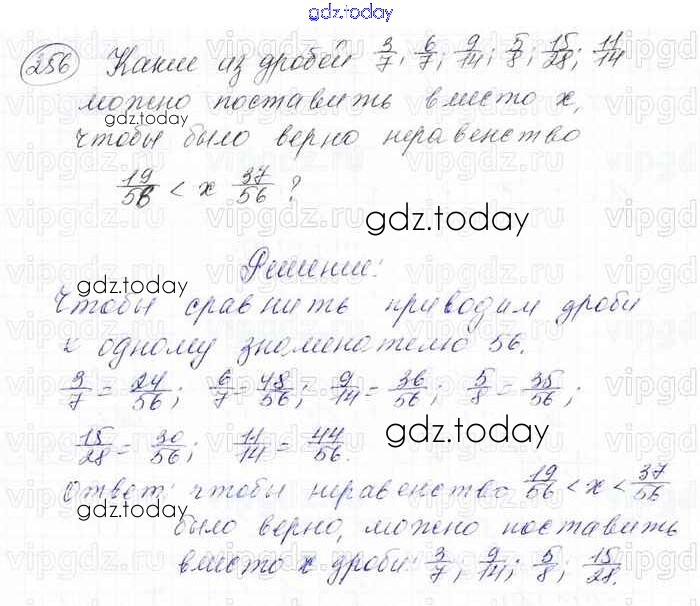 gdz.today
256 Какие из дробей 3/7; 6/7; 9/14; 5/8; 15/28; 11/14
можно поставить вместо x,
чтобы было верно неравенство
19/56 < x 37/56 ?
gdz.today
Решение:
Чтобы сравнить приводим дроби
к одному знаменателю 56.
3/7 = 24/56; 6/7 = 48/56; 9/14 = 36/56; 5/8 = 35/56;
15/28 = 30/56; 11/14 = 44/56.
gdz.today
Ответ: чтобы неравенство 19/56 < x < 37/56
было верно, можно поставить
вместо x дроби: 3/7; 9/14; 5/8; 15/28.
gdz.today
gdz.today
vipgdz.ru